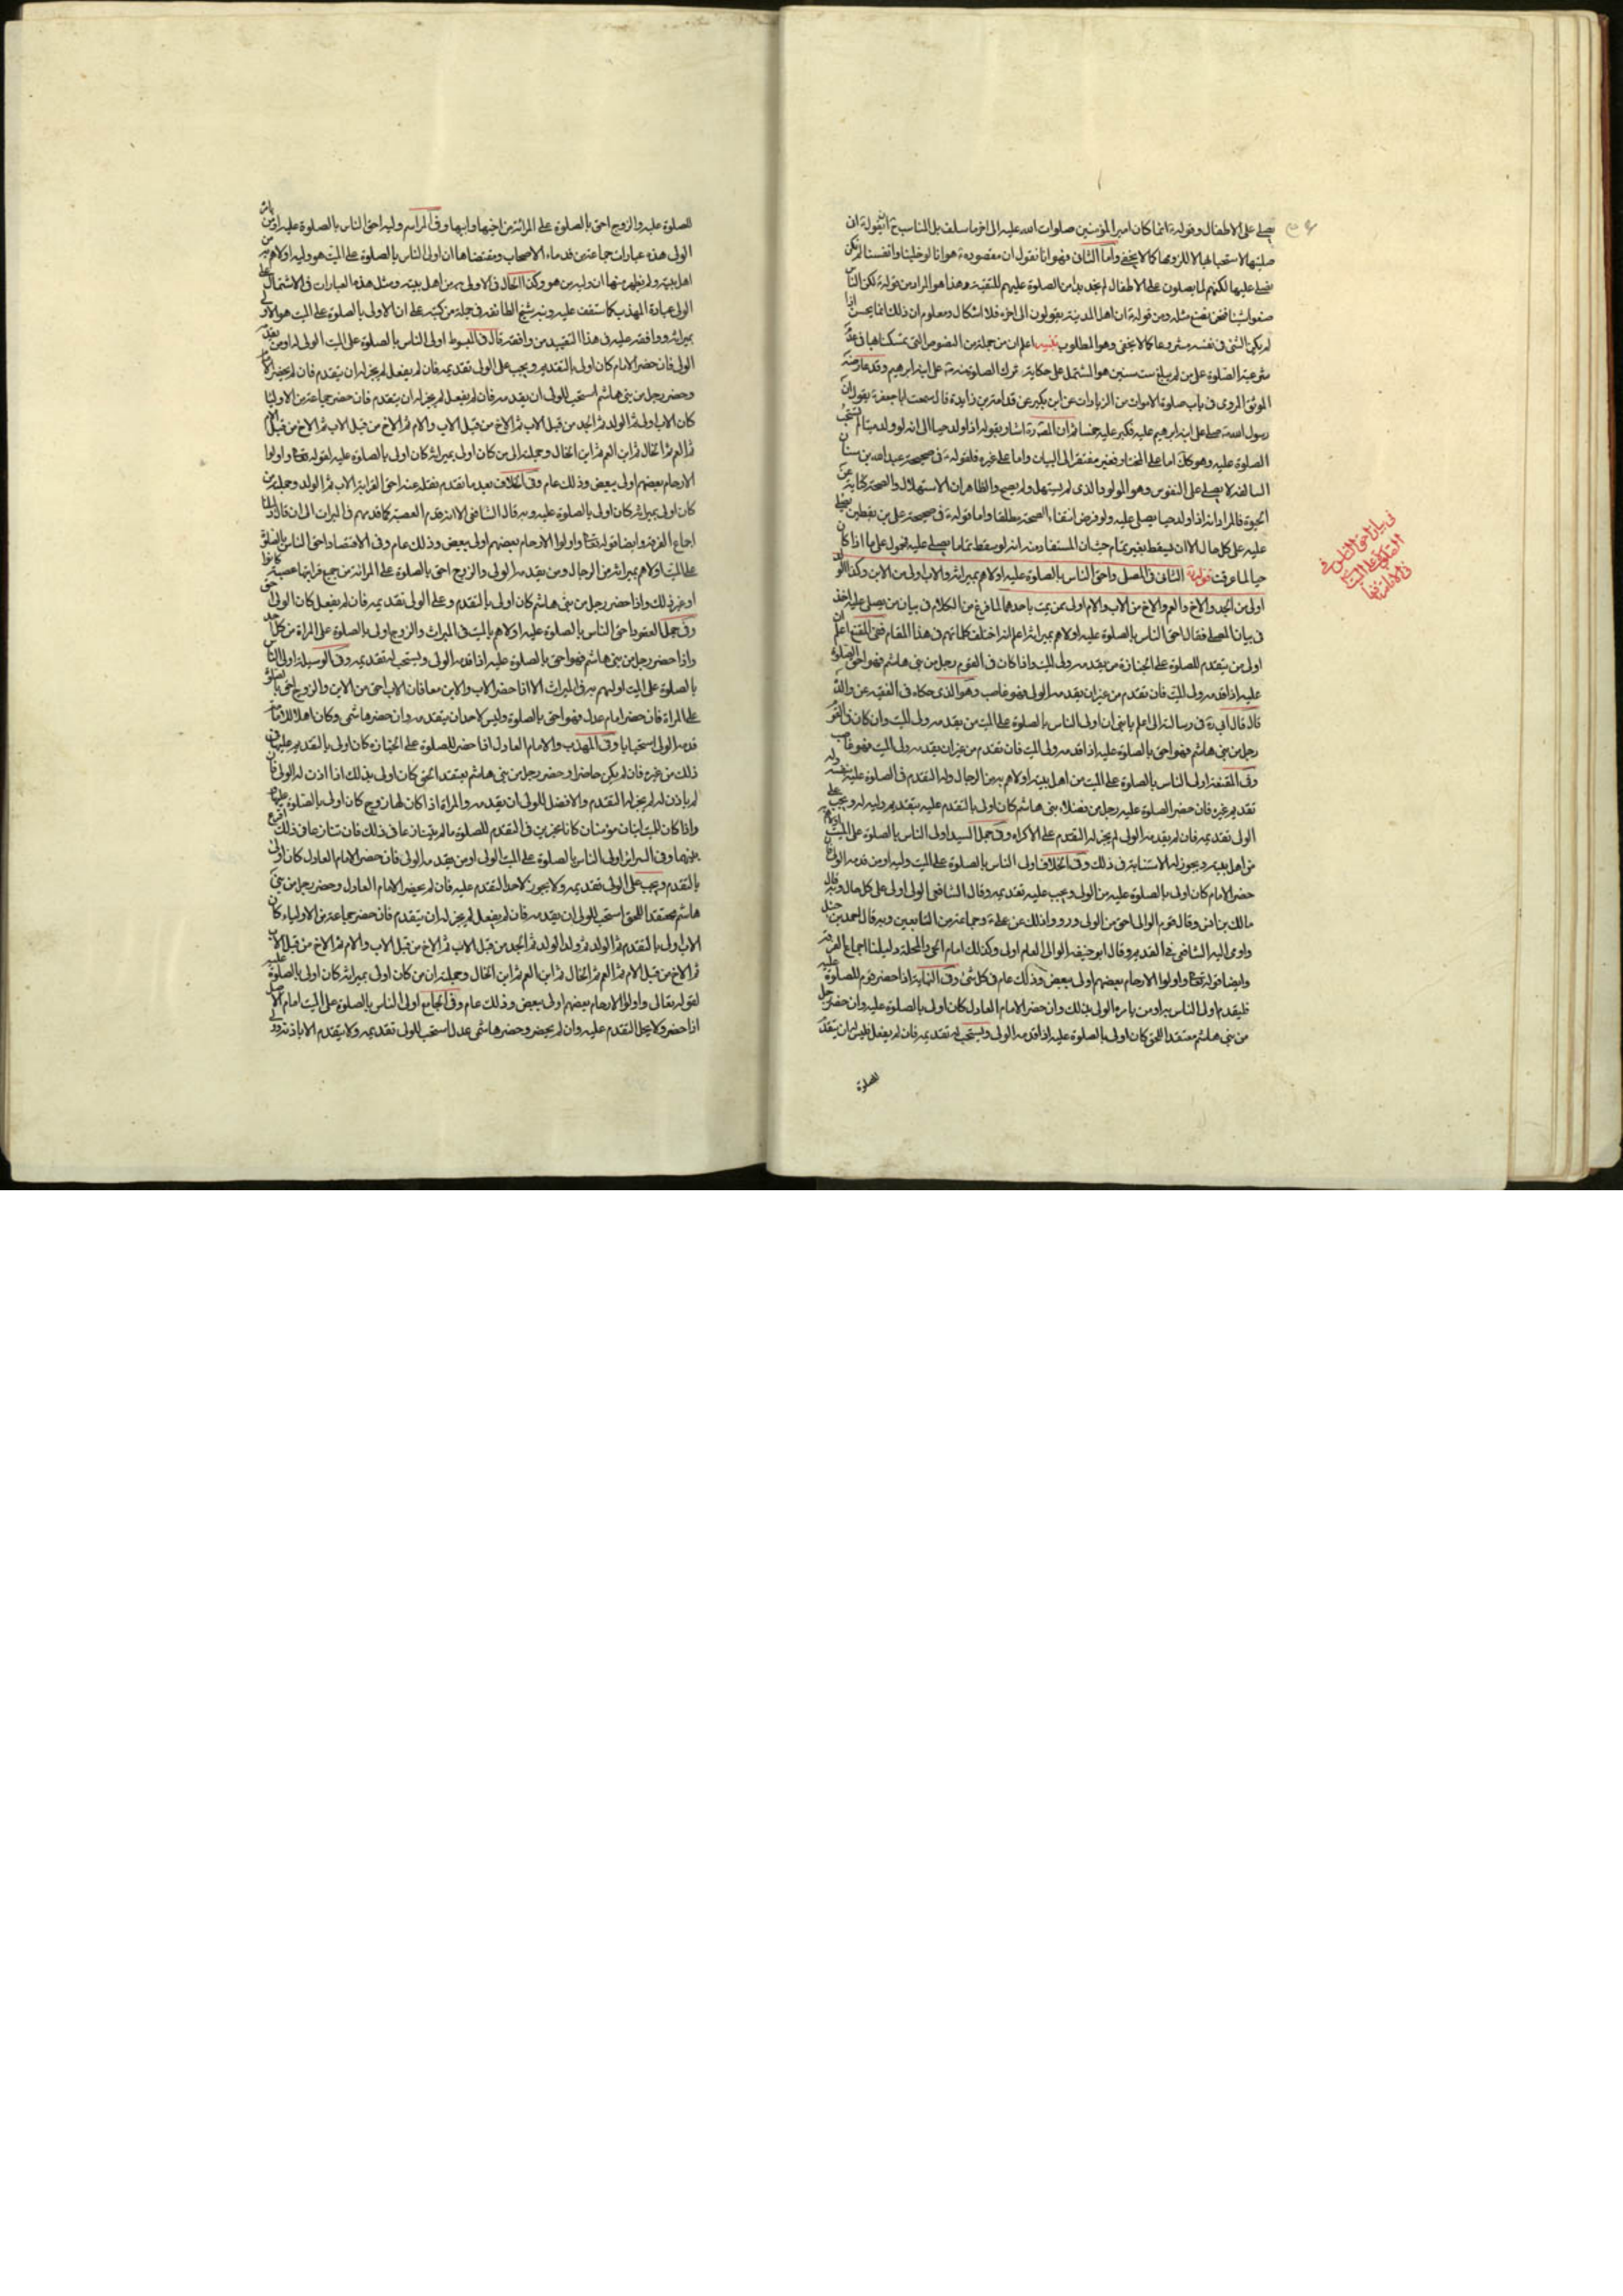 يصلي على الاطفال وقوله انما كان امير المؤمنين صلوات الله عليه الى اخر ما سلف بل المناسب ح ان يقول ان
صليتها لاستحبابها لا للزومها كما لا يخفى واما الثاني فهو انا نقول ان مقصوده هو انا لو خلينا وانفسنا لم نكن
نصلي عليها لكنهم لما يصلون على الاطفال لم نجد بدا من الصلوة عليهم للتقية وهذا هو المراد من قوله لكن الناس
صنعوا شيئا فنحن نصنع مثله ومن قوله ان اهل المدينة يقولون الى اخره فلا اشكال ومعلوم ان ذلك انما يحسن اذا
لم يكن الشئ في نفسه مشروعا كما لا يخفى وهو المطلوب تنبيه اعلم ان من جملة من النصوص التي تمسكنا بها في عدم
شرعية الصلوة على من لم يبلغ ست سنين هو المشتمل على حكاية ترك الصلوة منه على ابنه ابرهيم وقد عارضه
الموثق المروي في باب صلوة الاموات من الزيادات عن ابن بكير عن قدامة بن زايدة قال سمعت ابا جعفر يقول ان
رسول الله صلى على ابنه ابرهيم عليه فكبر عليه خمسا ثم ان المصنف اشار بقوله اذا ولد حيا الى انه لو ولد ميتا لم تستحب
الصلوة عليه وهو كك اما على المختار فغير مفتقر الى البيان واما على غيره فلقوله في صحيحة عبد الله بن سنان
السالفة لا يصلي على المنفوس وهو المولود الذي لم يستهل ولم يصح والظاهر ان الاستهلال والصيحة كناية عن
الحيوة فالمراد انه اذا ولد حيا يصلي عليه ولو فرض انتفاء الصيحة مطلقا واما قوله في صحيحة علي بن يقطين يصلي
عليه على كل حال الا ان يسقط بغير تمام حيث ان المستفاد منه انه لو سقط تماما يصلي عليه فمحمول على ما اذا كان
حيا لما عرفت قوله الثاني في المصلي واحق الناس بالصلوة عليه اولاهم بميراثه والاب اولى من الابن وكذا الولد
اولى من الجد والاخ والعم والاخ من الاب والام اولى ممن يمت باحدهما لما فرغ من الكلام في بيان من يصلي عليه اخذ
في بيان المصلي فقال احق الناس بالصلوة عليه اولاهم بميراثه اعلم انه اختلف كلماتهم في هذا المقام ففي المقنع اعلم ان
اولى من يتقدم للصلوة على الجنازة من يقدمه ولي الميت واذا كان في القوم رجل من بني هاشم فهو احق بالصلوة
عليه اذا قدمه ولي الميت فان تقدم من غير ان يقدمه الولي فهو غاصب وهو الذي حكاه في الفقيه عن والده
قال قال ابي في رسالته الي اعلم يا بني ان اولى الناس بالصلوة على الميت من يقدمه ولي الميت وان كان في القوم
رجل من بني هاشم فهو احق بالصلوة عليه اذا قدمه ولي الميت فان تقدم من غير ان يقدمه ولي الميت فهو غاصب
وفي المقنعة اولى الناس بالصلوة على الميت من اهل بيته اولاهم به من الرجال وله التقدم في الصلوة عليه بنفسه وله
تقديم غيره فان حضر الصلوة عليه رجل من فضلاء بني هاشم كان اولى بالتقدم عليه بتقديم وليه له ويجب على
الولي تقديمه فان لم يقدمه الولي لم يجز له التقدم على الاكراه وفي جمل السيد اولى الناس بالصلوة على الميت اولاهم به
من اهل بيته ويجوز له الاستنابة في ذلك وفي الخلاف اولى الناس بالصلوة على الميت وليه او من قدمه الولي فان
حضر الامام كان اولى بالصلوة عليه من الولي ويجب عليه تقديمه وقال الشافعي الولي اولى على كل حال وبه قال
مالك بن انس وقال قوم الوالي احق من الولي ورووا ذلك عن علي وجماعة من التابعين وبه قال احمد بن حنبل
واومى اليه الشافعي في القديم وقال ابو حنيفه الوالي العام اولى وكذلك امام الحي والمحلة دليلنا اجماع الفرقة
وايضا قوله تعالى واولوا الارحام بعضهم اولى ببعض وذلك عام في كل شئ وفي النهاية اذا حضر القوم للصلوة عليه
فليقدم اولى الناس به او من يامره الولي بذلك وان حضر الامام العادل كان اولى بالصلوة عليه وان حضر رجل
من بني هاشم معتقدا للحق كان اولى بالصلوة عليه اذا قدمه الولي ويستحب له تقديمه فان لم يفعل فليس له ان يتقدم
للصلوة
في بيان احق الناس في
الصلوة على الميت
للصلوة عليه والزوج احق بالصلوة على المرائة من اخيها وابيها وفي المراسم وليه احق الناس بالصلوة عليه او من ياذن
الولي هذه عبارات جماعة من قدماء الاصحاب ومقتضاها ان اولى الناس بالصلوة على الميت هو وليه اولاهم به من
اهل بيته ولم يظهر منها ان وليه من هو وكذا الحال في الاولى به من اهل بيته ومثل هذه العبارات في الاشتمال على
الولي عبارة المهذب كما ستقف عليه ونبه شيخ الطائفه في جملة من كتبه على ان الاولى بالصلوة على الميت هو الاولى
بميراثه ووافقه عليه في هذا التقييد من وافقه قال في المبسوط اولى الناس بالصلوة على الميت الولي له او من يقدمه
الولي فان حضر الامام كان اولى بالتقديم ويجب على الولي تقديمه فان لم يفعل لم يجز له ان يتقدم فان لم يحضر الامام
وحضر رجل من بني هاشم استحب للولي ان يقدمه فان لم يفعل لم يجز له ان يتقدم فان حضر جماعة من الاولياء
كان الاب اولى ثم الولد ثم الجد من قبل الاب ثم الاخ من قبل الاب والام ثم الاخ من قبل الاب ثم الاخ من قبل الام
ثم العم ثم الخال ثم ابن العم ثم ابن الخال وجملته الى من كان اولى بميراثه كان اولى بالصلوة عليه لقوله تعالى واولوا
الارحام بعضهم اولى ببعض وذلك عام وفي الخلاف بعد ما تقدم نقله عنه احق القرابة الاب ثم الولد وجملته من
كان اولى بميراثه كان اولى بالصلوة عليه وبه قال الشافعي الا انه قدم العصبة كما قدمهم في الميراث الى ان قال دليلنا
اجماع الفرقة وايضا قوله تعالى واولوا الارحام بعضهم اولى ببعض وذلك عام وفي الاقتصاد احق الناس بالصلوة
على الميت اولاهم بميراثه من الرجال ومن يقدمه الولي والزوج احق بالصلوة على المرائة من جميع قراباتها عصبة كانوا
او غير ذلك واذا حضر رجل من بني هاشم كان اولى بالتقدم وعلى الولي تقديمه فان لم يفعل كان الولي احق
وفي جمل العقود احق الناس بالصلوة عليه اولاهم بالميت في الميراث والزوج اولى بالصلوة على المراة من كل احد
واذا حضر رجل من بني هاشم فهو احق بالصلوة عليه اذا قدمه الولي ويستحب له تقديمه وفي الوسيلة اولى الناس
بالصلوة على الميت اولهم به في الميراث الا اذا حضر الاب والابن معا فان الاب احق من الابن والزوج احق بالصلوة
على المراة فان حضر امام عدل فهو احق بالصلوة وليس لاحد ان يتقدمه وان حضر هاشمي وكان اهلا للامامة
قدمه الولي استحبابا وفي المهذب والامام العادل اذا حضر للصلوة على الجنازه كان اولى بالتقديم عليها في
ذلك من غيره فان لم يكن حاضرا وحضر رجل من بني هاشم يعتقد الحق كان اولى بذلك اذا اذن له الولي فان
لم ياذن له لم يجز له التقدم والافضل للولي ان يقدمه والمراة اذا كان لها زوج كان اولى بالصلوة عليها
واذا كان للميت ابنان مؤمنان كانا مخيرين في التقدم للصلوة مالم يتنازعا في ذلك فان تنازعا في ذلك اقرع
بينهما وفي السرائر اولى الناس بالصلوة على الميت الولي او من يقدمه الولي فان حضر الامام العادل كان اولى
بالتقدم ويجب على الولي تقديمه ولا يجوز لاحد التقدم عليه فان لم يحضر الامام العادل وحضر رجل من بني
هاشم معتقدا للحق استحب للولي ان يقدمه فان لم يفعل لم يجز له ان يتقدم فان حضر جماعة من الاولياء كان
الاب اولى بالتقديم ثم الولد ثم ولد الولد ثم الجد من قبل الاب ثم الاخ من قبل الاب والام ثم الاخ من قبل الاب
ثم الاخ من قبل الام ثم العم ثم الخال ثم ابن العم ثم ابن الخال وجملته ان من كان اولى بميراثه كان اولى بالصلوة عليه
لقوله تعالى واولوا الارحام بعضهم اولى ببعض وذلك عام وفي الجامع اولى الناس بالصلوة على الميت امام الاصل
اذا حضر ولا يحل التقدم عليه وان لم يحضر وحضر هاشمي عدل استحب للولي تقديمه ولا يتقدم الا باذنه